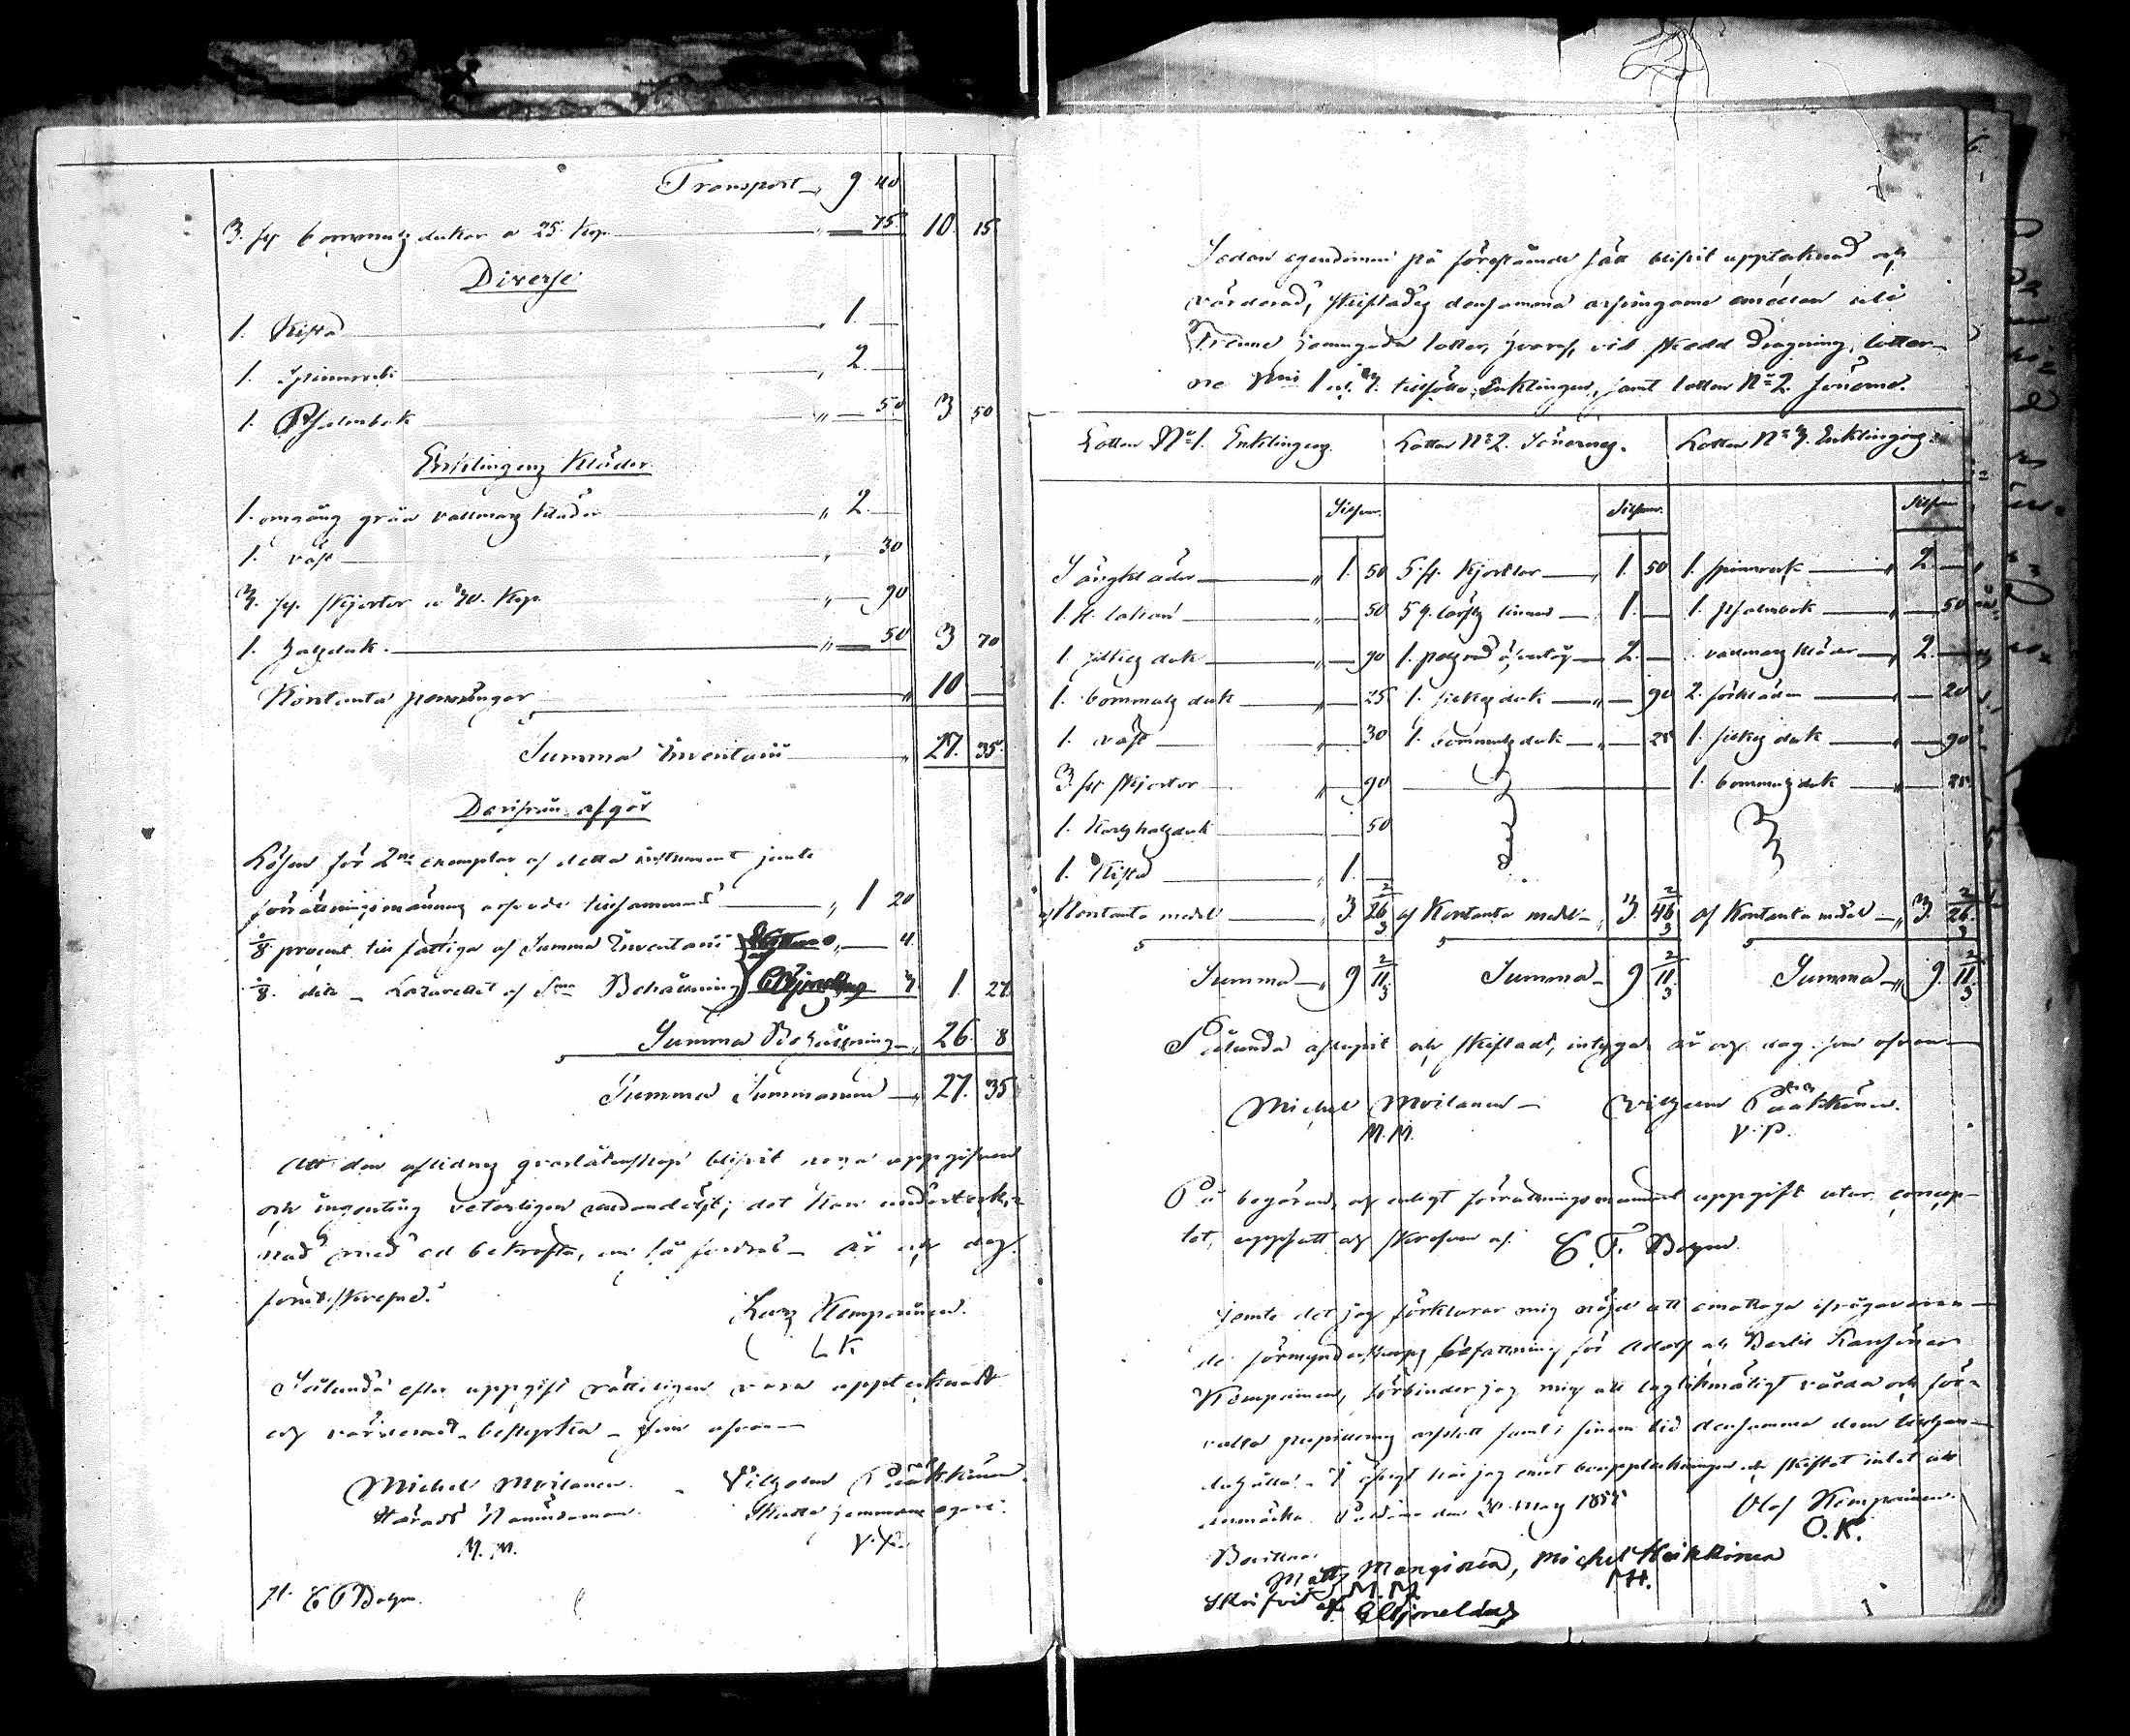 Transport 9 40
3. st. bommulz dukar a 25 Kop. 75. 10. 15
Diverse
1. Kista 1. —
1. Spinnrock 2. —
1. Psalmbok 50 3 50
Enklingens Kläder
1. omgång gråa vallmanz kläder 2. —
1. väst 30
3. st. skjortor a 30. Kop. 90
1. halzduk 50 3 70
Kontanta penningar 10 —
Summa Inventarii 27. 35.
Därifrån afgår
Lösen för 2ne exemplar af detta instrument jemte
förrättningsmännens arfvode tillsammans 1 20
1/8 procent till fattiga af Summa Inventarii 4.
1/8. dito Lazarettet af Sma Behållning 3. 1. 27.
Summa Behållning 26. 8
Summa Summarum 27. 35
Att den aflidnes qvarlåtenskap blifvit noga uppgifven
och ingenting veterligen undandöljt; det kan underteck-
nad med ed bekräfta, om så fordras. År och dag
förutskrefne.
Lars Kemppainen.
L K
Sålunda efter uppgift rätteligen vara upptecknadt
och värderadt, bekräfta som ofvan
Michel Moilanen. Vilhelm Pääkkönen.
Härads Nämndeman. Skatte hemmans egare.
M. M. V. P.
C F Bohm.
Sedan egendomen på förestående sätt blifvit upptecknad och
värderad, skiftades densamma arfvingarne emellan uti
Trenne jemngoda lotter, hvaraf, vid skedd dragning, lotter-
ne Nris 1 och 3. tillföllo Enklingen, samt lotten No 2 Sönerne.
Lotten No 1. Enklingens. Lotten No 2. Sönernes. Lotten No 3. Enklingens
Silfver. Silfver. Silfver
Sängkläder 1. 50 5. st. Kjortlar 1. 50 1. spinnrock 2. —
1. st. lakan 50 5 1. — 1. psalmbok 50
1. silkes duk 90 1. 2. — vallmans kläder 2. —
1. bommulz duk 25 1. silkes duk 90 2. förkläden 20
1. väst 30 1. bommulz duk 25 1. silkes duk 90
3. st. skjortor 90 1. bommulz duk 25.
1. halzduk 50
1. Kista 1. —
af Kontanta medel 3. 26 2/3 af Kontanta medel 3. 46 2/3 af Kontanta medel 3. 26 2/3
Summa 9 11 2/3 Summa 9 11 2/3 Summa 9. 11 2/3
Sålunda aflupit och skiftadt, intyga år och dag som ofvan
Michel Moilanen Vilhelm Pääkkönen.
M. M. V. P.
På begäran, och enligt förrättningsmännens uppgift utur concep-
tet, uppsatt och skrefven af C F Bohm.
Jemte det jag förklarar mig nöjd att emottaga ifrågavaran-
de förmynderskaps befattning för Adolf och Bertil
Kemppainen, förbinder jag mig att laglikmätigt vårda och för-
valta samt i sinom tid densamma dem
I öfrigt har jag emot bouppteckningen och skiftet intet att
anmärka. den May Olof Kemppainen.
O. K.
Bevittna:
Matts Manginen, Michel Heikkinen
M. M. M H.
Skrifvit af